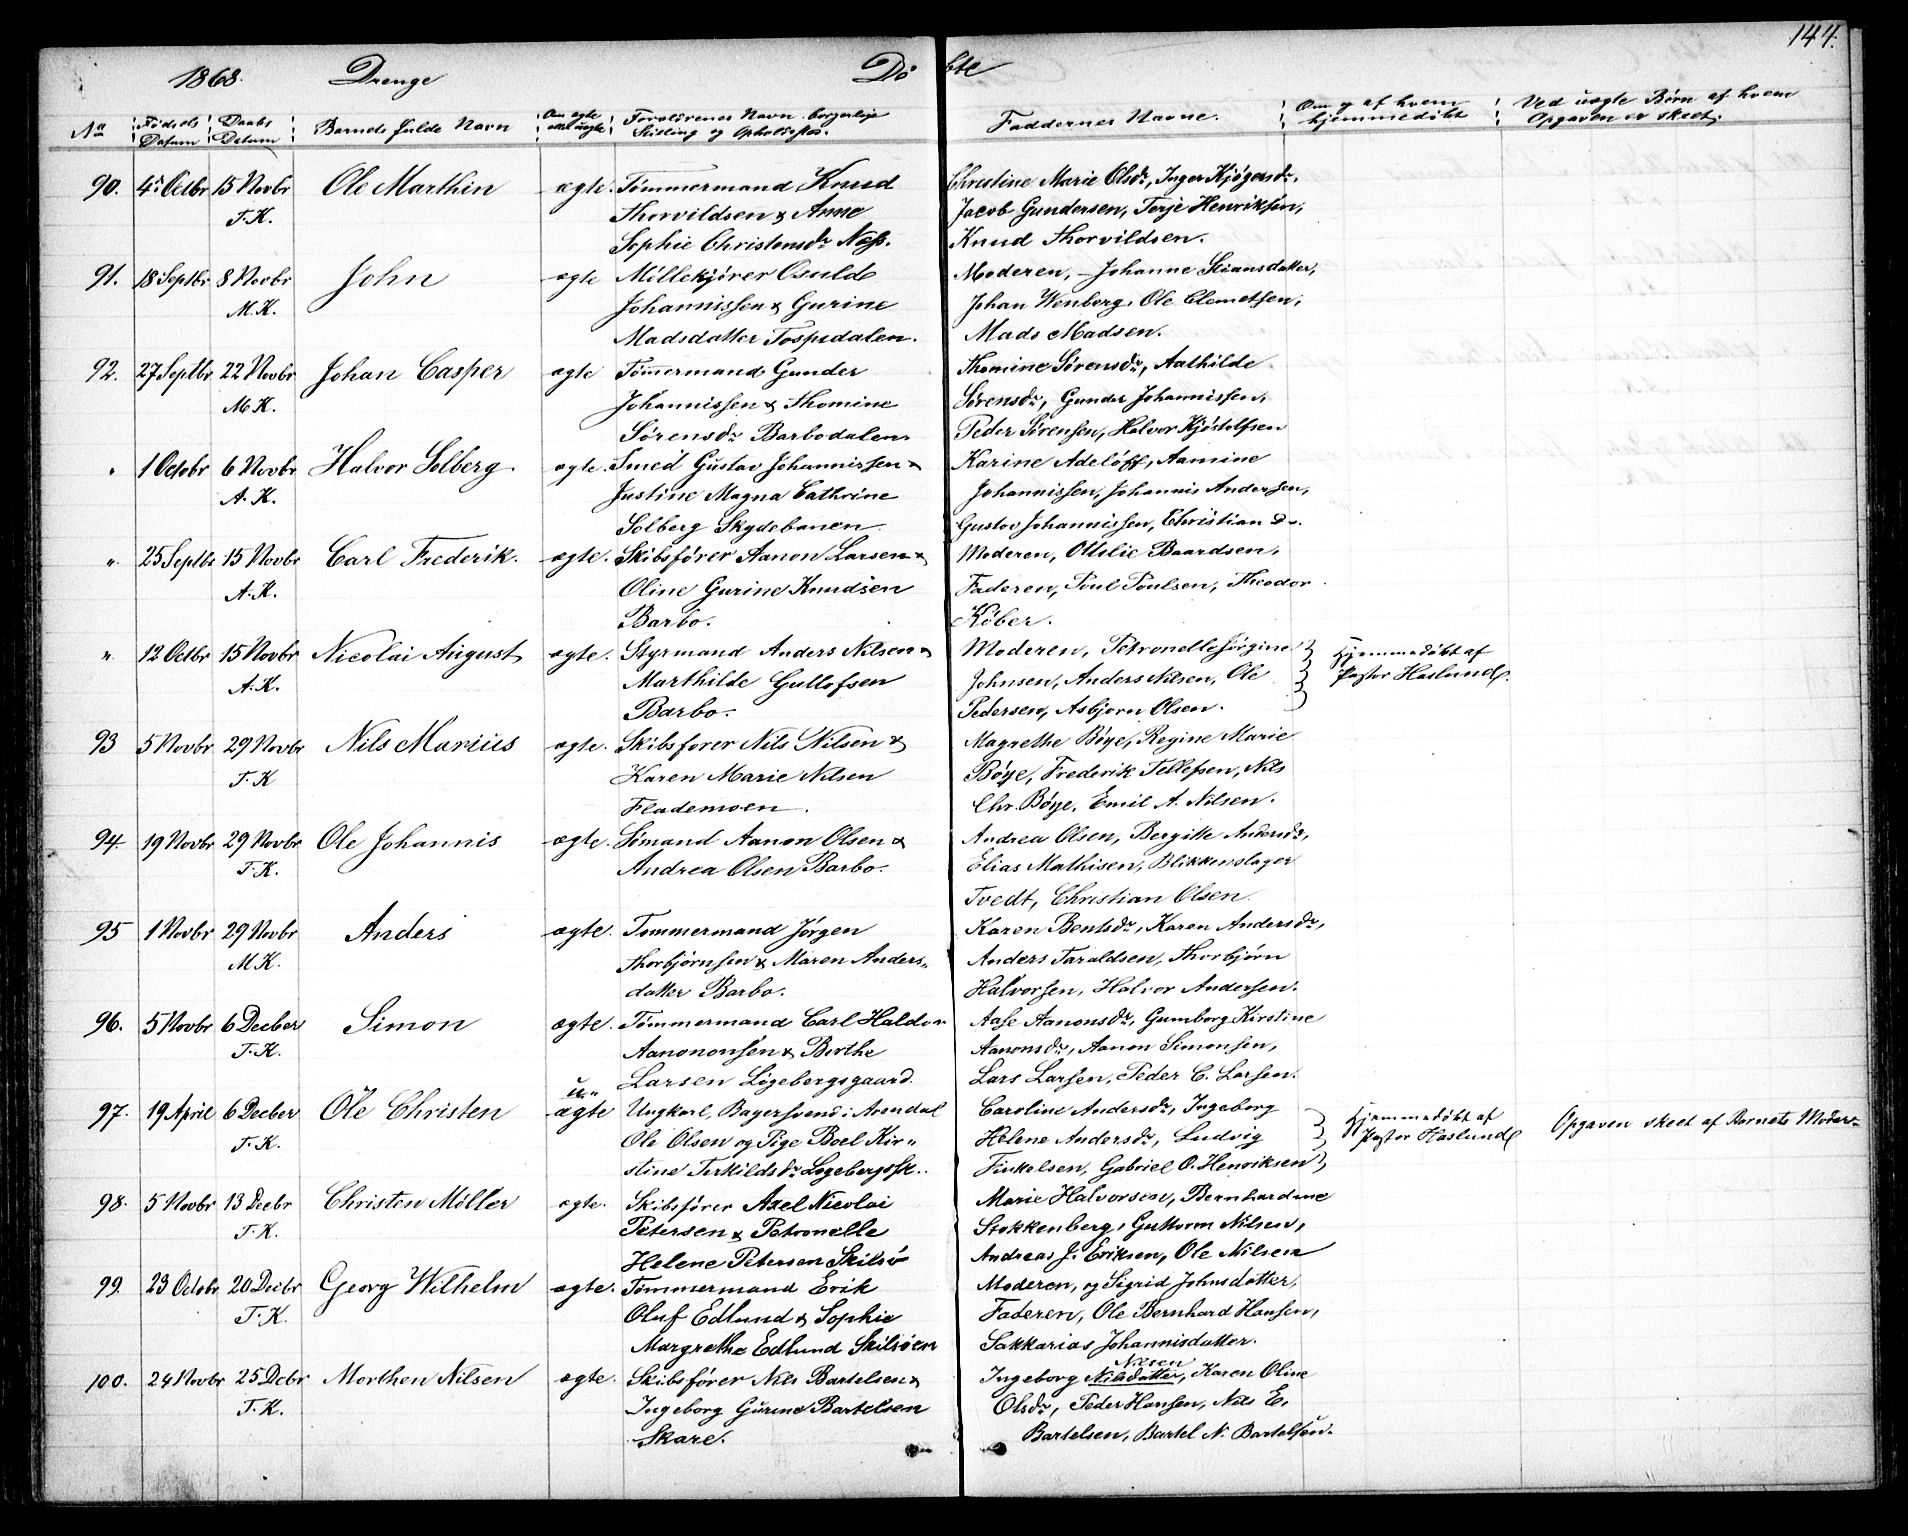 144.
1868. Drenge Døbte
No Fødsels Datum Daabs Datum Barnets fulde Navn Om ægte eller uægte Forældrenes Navn borgerlige Stilling og Opholdssted. Faddernes Navne. Om og af hvem hjemmedøbt Ved uægte Børn af hvem Opgaven er skeet.
90. 4de Octbr 15 Novbr Ole Marthin ægte. Tømmermand Knud Christine Marie Olsdr, Inger Kjøgersdr,
T.K. Thorvildsen & Anne Jacob Gundersen, Terje Henriksen,
Sophie Christensdr Næss. Knud Thorvildsen.
91. 18 Septbr 8 Novbr John ægte Møllekjører Osuld Moderen, Johanne Stiansdatter,
M.K. Johannissen & Gurine Johan Wenberg, Ole Clemetsen,
Madsdatter Tospedalen. Mads Madsen.
92. 27 Septbr 22 Novbr Johan Casper ægte Tømmermand Gunder Thomine Sørensdr, Aathilde
M.K. Johannissen & Thomine Sørensdr, Gunder Johannissen,
Sørensdr Barbodalen. Peder Sørensen, Halvor Kjøstolfsen
" 1 Octobr 6 Novbr Halvor Solberg ægte. Smed Gustav Johannissen & Karine Adeløff, Aamine
A.K. Justine Magna Cathrine Johannissen, Johannis Andersen,
Solberg Skydebanen Gustav Johannissen, Christian do.
" 25 Septbr 15 Novbr Carl Frederik. ægte. Skibsfører Aanon Larsen & Moderen, Ottilie Baardsen,
A.K. Oline Gurine Knudsen Faderen, Poul Poulsen, Theodor
Barbo. Køber.
" 12 Octbr 15 Novbr Nicolai August ægte. Styrmand Anders Nilsen & Moderen, Petronelle Jørgine Hjemmedøbt af
A.K. Marthilde Gullofsen Johnsen, Anders Nilsen, Ole Pastor Haslund.
Barbo. Pedersen, Asbjorn Olsen.
93 5 Novbr 29 Novbr Nils Marius ægte. Skibsfører Nils Nilsen & Magrethe Bøye, Regine Marie
T.K Karen Marie Nilsen Bøye, Frederik Tellefsen, Nils
Flademoen. Chr. Bøye, Emil A. Nilsen.
94. 19 Novbr 29 Novbr Ole Johannis ægte. Sømand Aanon Olsen & Andrea Olsen, Bergitte Andersdr,
T.K. Andrea Olsen Barbo. Elias Mathisen, Blikkenslager
Tvedt, Christian Olsen.
95 1 Novbr 29 Novbr Anders ægte. Tømmermand Jørgen Karen Bentsdr, Karen Andersdr,
M.K. Thorbjørnsen & Maren Anders- Anders Taraldsen, Thorbjørn
datter Barbo. Halvorsen, Halvor Andersen.
96. 5 Novbr 6 Decber Simon ægte. Tømmermand Carl Haldor Aase Aanonsdr, Gumborg Kirstine
T.K. Aanononsen & Birthe Aanonsdr, Aanon Simonsen,
Larsen Løgebergsgaard. Lars Larsen, Peder C. Larsen.
97. 19 April 6 Decber Ole Christen u- ægte Ungkarl, Bagersvend i Arendal Caroline Andersdr, Ingeborg Hjemmedøbt af Opgaven skeet af Barnets Moder
T.K. Ole Olsen og Pige Boel Kir- Helene Andersdr, Ludvig Pastor Haslund
stine Terkildsdr Løgebergssk.. Finkelsen, Gabriel O. Henriksen,
98. 5 Novbr 13 Decbr Christen Møller ægte. Skibsfører Axel Nicolai Marie Halvorsen, Bernhardine
T.K. Petersen & Petronelle Stokkenberg, Guttorm Nilsen,
Helene Petersen Skilsø Andreas J. Eriksen, Ole Nilsen
99. 23 Octobr 20 Decbr Georg Wilhelm ægte. Tømmermand Erik Moderen, og Sigrid Johnsdatter,
T.K. Oluf Edlund & Sophie Faderen, Ole Bernhard Hansen,
Margrethe Edlund Skilsøen Sakkarias Johannisdatter.
100. 24 Novbr 25 Dcbr Morthen Nilsen ægte. Skibsfører Nils Bartelsen & Ingeborg Nilsdatter Nilsen, Karen Oline
T.K. Ingeborg Gurine Bartelsen Olsdr, Peder Hansen, Nils E.
Skare. Bartelsen, Bartel N. Bartelsen.